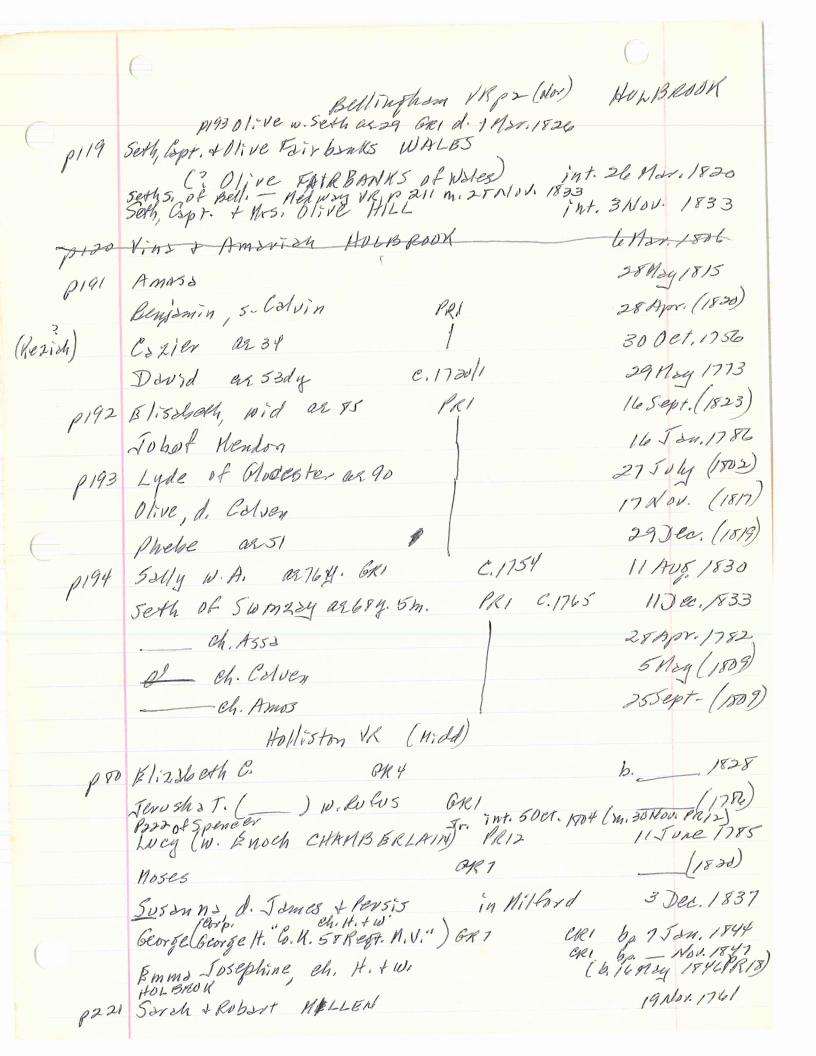 Bellingham VR p2 (Nor) HOLBROOK
p193 Olive w. Seth ae 29 GR1 d. 7 Mar. 1826
p119 Seth, Capt. + Olive Fairbanks WALES
(? Olive FAIRBANKS of Wales) int. 26 Mar. 1820
Seth S. of Bell. — Medway VR p 211 m. 25 Nov. 1833
Seth, Capt. + Mrs. Olive HILL int. 3 Nov. 1833
p120 Vina + Amariah HOLBROOK 6 Mar. 1806
p191 Amasa 28 May 1815
Benjamin, s. Calvin PR1 28 Apr. (1820)
?
(Keziah) Cazier ae 34 30 Oct. 1756
David ae 53dy c. 1720/1 29 May 1773
p192 Elisabeth, wid ae 85 PR1 16 Sept. (1823)
Job of Mendon 16 Jan. 1786
p193 Lyde of Glocester ae 90 27 July (1802)
Olive, d. Calven 17 Nov. (1817)
Phebe ae 51 29 Dec. (1819)
p194 Sally w. A. ae 76y. GR1 c. 1754 11 Aug. 1830
Seth of Swmzay ae 68y. 5m. PR1 c. 1765 11 Dec. 1833
____ ch. Assa 28 Apr. 1782
____ ch. Calven 5 May (1809)
____ ch. Amos 25 Sept- (1809)
Holliston VR (Midd)
p80 Elizabeth C. GR4 b. ____ 1828
Jerusha T. (____) w. Rufus GR1 ____ (1786)
p222 of Spencer Jr. int. 5 Oct. 1704 (m. 30 Nov. PR12)
Lucy (w. Enoch CHAMBERLAIN) PR12 11 June 1785
Moses GR7 ____ (1820)
Susanna d. James + Persis in Milford 3 Dec. 1837
(Corp. ch. H. + w.
George (George H. "Co. K. 58 Regt. M.V.") GR7 CR1 bp 7 Jan. 1844
CR1 bp. — Nov. 1847
Emma Josephine, ch. H. + w. (b. 16 May 1846 PR18)
HOLBROK
p221 Sarah + Robart MELLEN 19 Nov. 1761